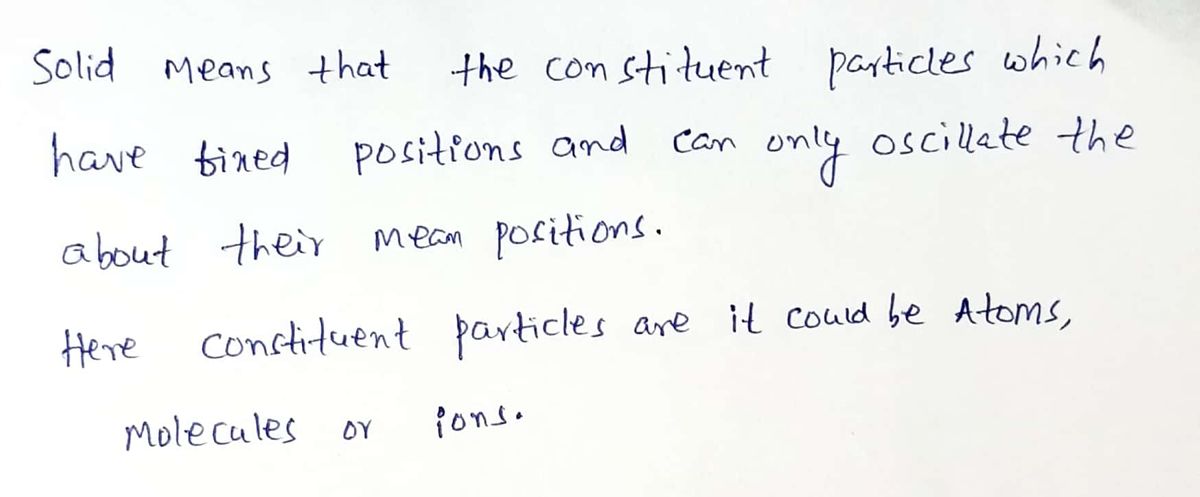 Solid means that the constituent particles which
have fixed positions and can only oscillate the
about their mean positions.
Here constituent particles are it could be Atoms,
Molecules or ions.